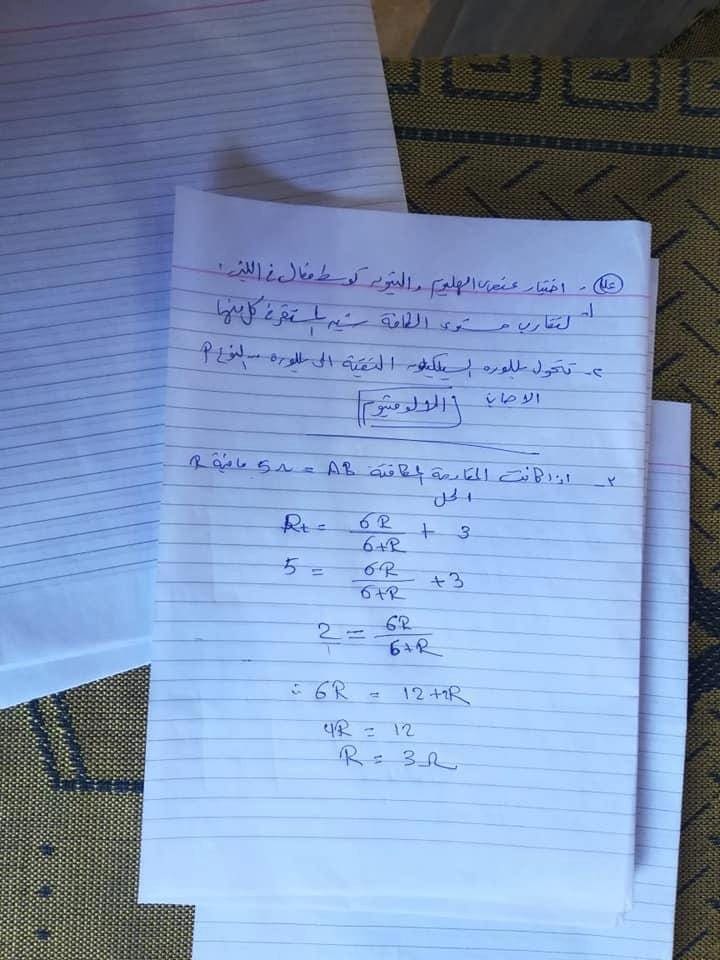 علل - اختيار عنصرى الهليوم والنيون كوسط فعال فى الليزر.
1- لتقارب مستوى الطاقة شبه المستقرة فى كل منها
2- تتحول بللوره السيليكون النقية الى بللوره من النوع P
الاجابه الالومنيوم
2- اذا كانت المقاومة المكافئة AB = 5Ω ماقيمة R
الحل
Rt = 6R / 6+R + 3
5 = 6R / 6+R + 3
2 / 1 = 6R / 6+R
∴ 6R = 12+2R
4R = 12
R = 3Ω